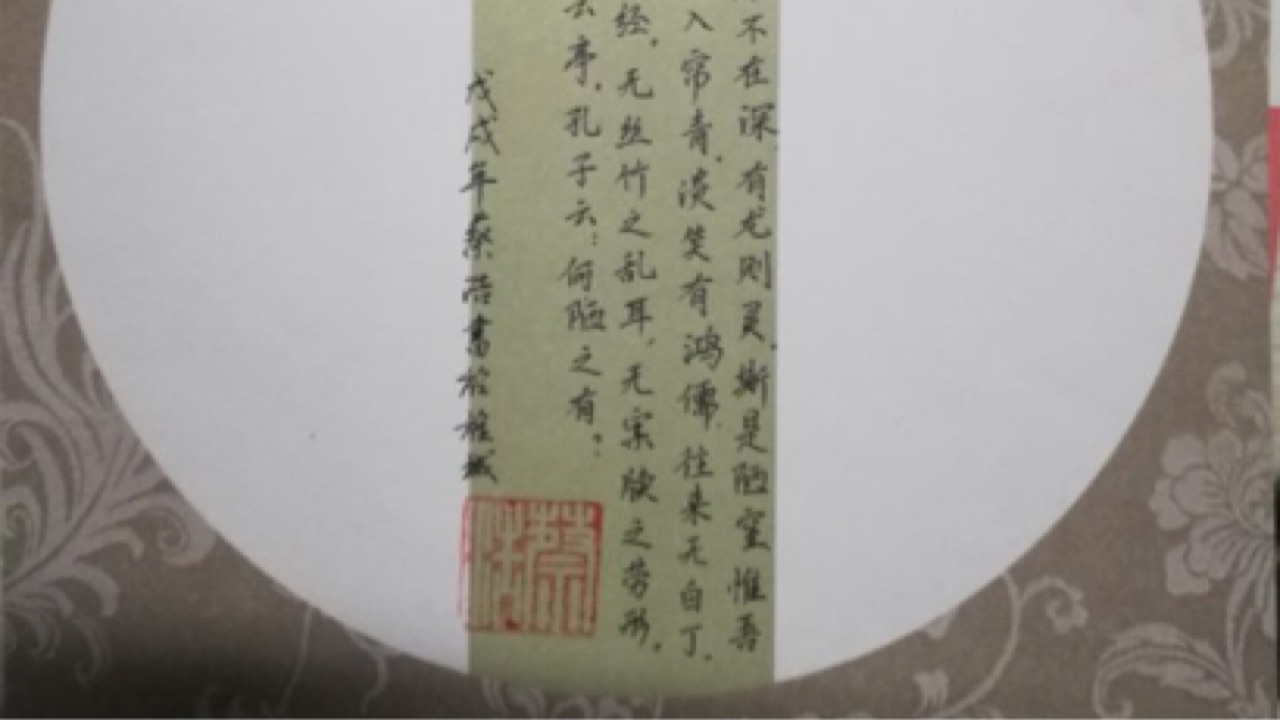 不在深,有龙则灵,斯是陋室惟吾
入帘青,淡笑有鸿儒,往来无白丁,
经,无丝竹之乱耳,无案牍之劳形,
云亭,孔子云:何陋之有?
戊戌年蔡浩書於城
蔡